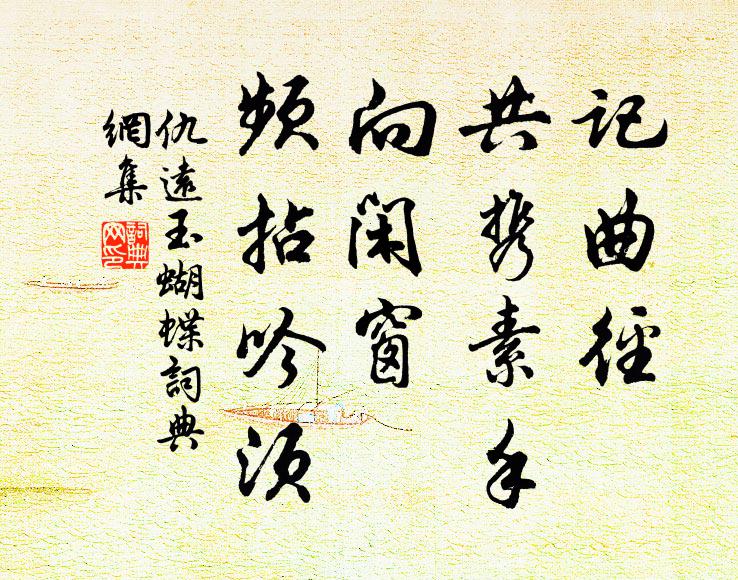 记曲径
共携素手
向闲窗
频拈吟须
仇远玉蝴蝶詞典
網集
詞典
网印